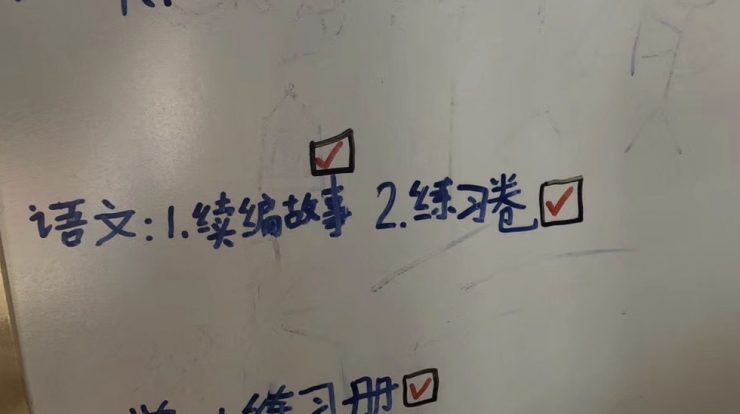 语文:1.续编故事 2.练习卷
练习册